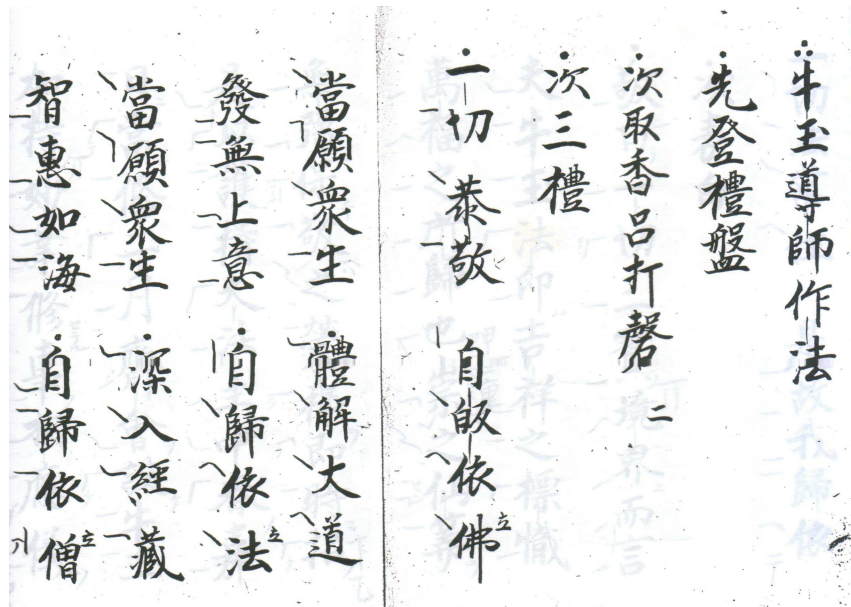 牛玉導師作法
先登禮盤
次取香呂打磬 二
次三禮
一切恭敬 自皈依佛 立
當願衆生 體解大道
發無上意 自歸依法 立
當願衆生 深入經藏
智惠如海 自歸依僧 立